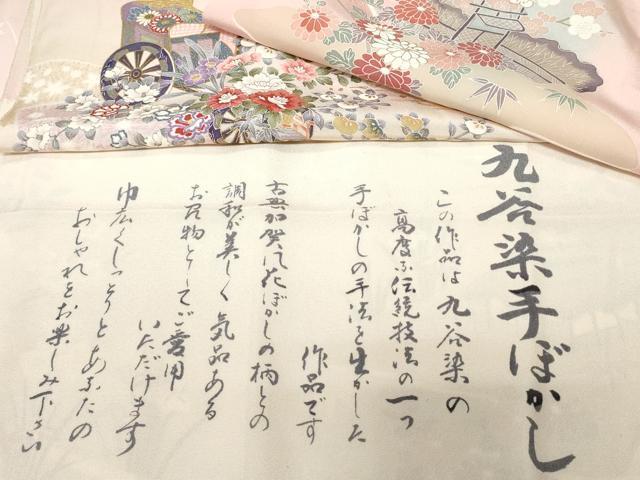 九谷染手ぼかし
この作品は九谷染の
高度な伝統技法の一つ
手ぼかしの手法を生かした
作品です
古典加賀花ぼかしの柄との
調和が美しく気品ある
お召物としてご着用
いただけます
巾広くしっとりとあなたの
おしゃれをお楽しみ下さい